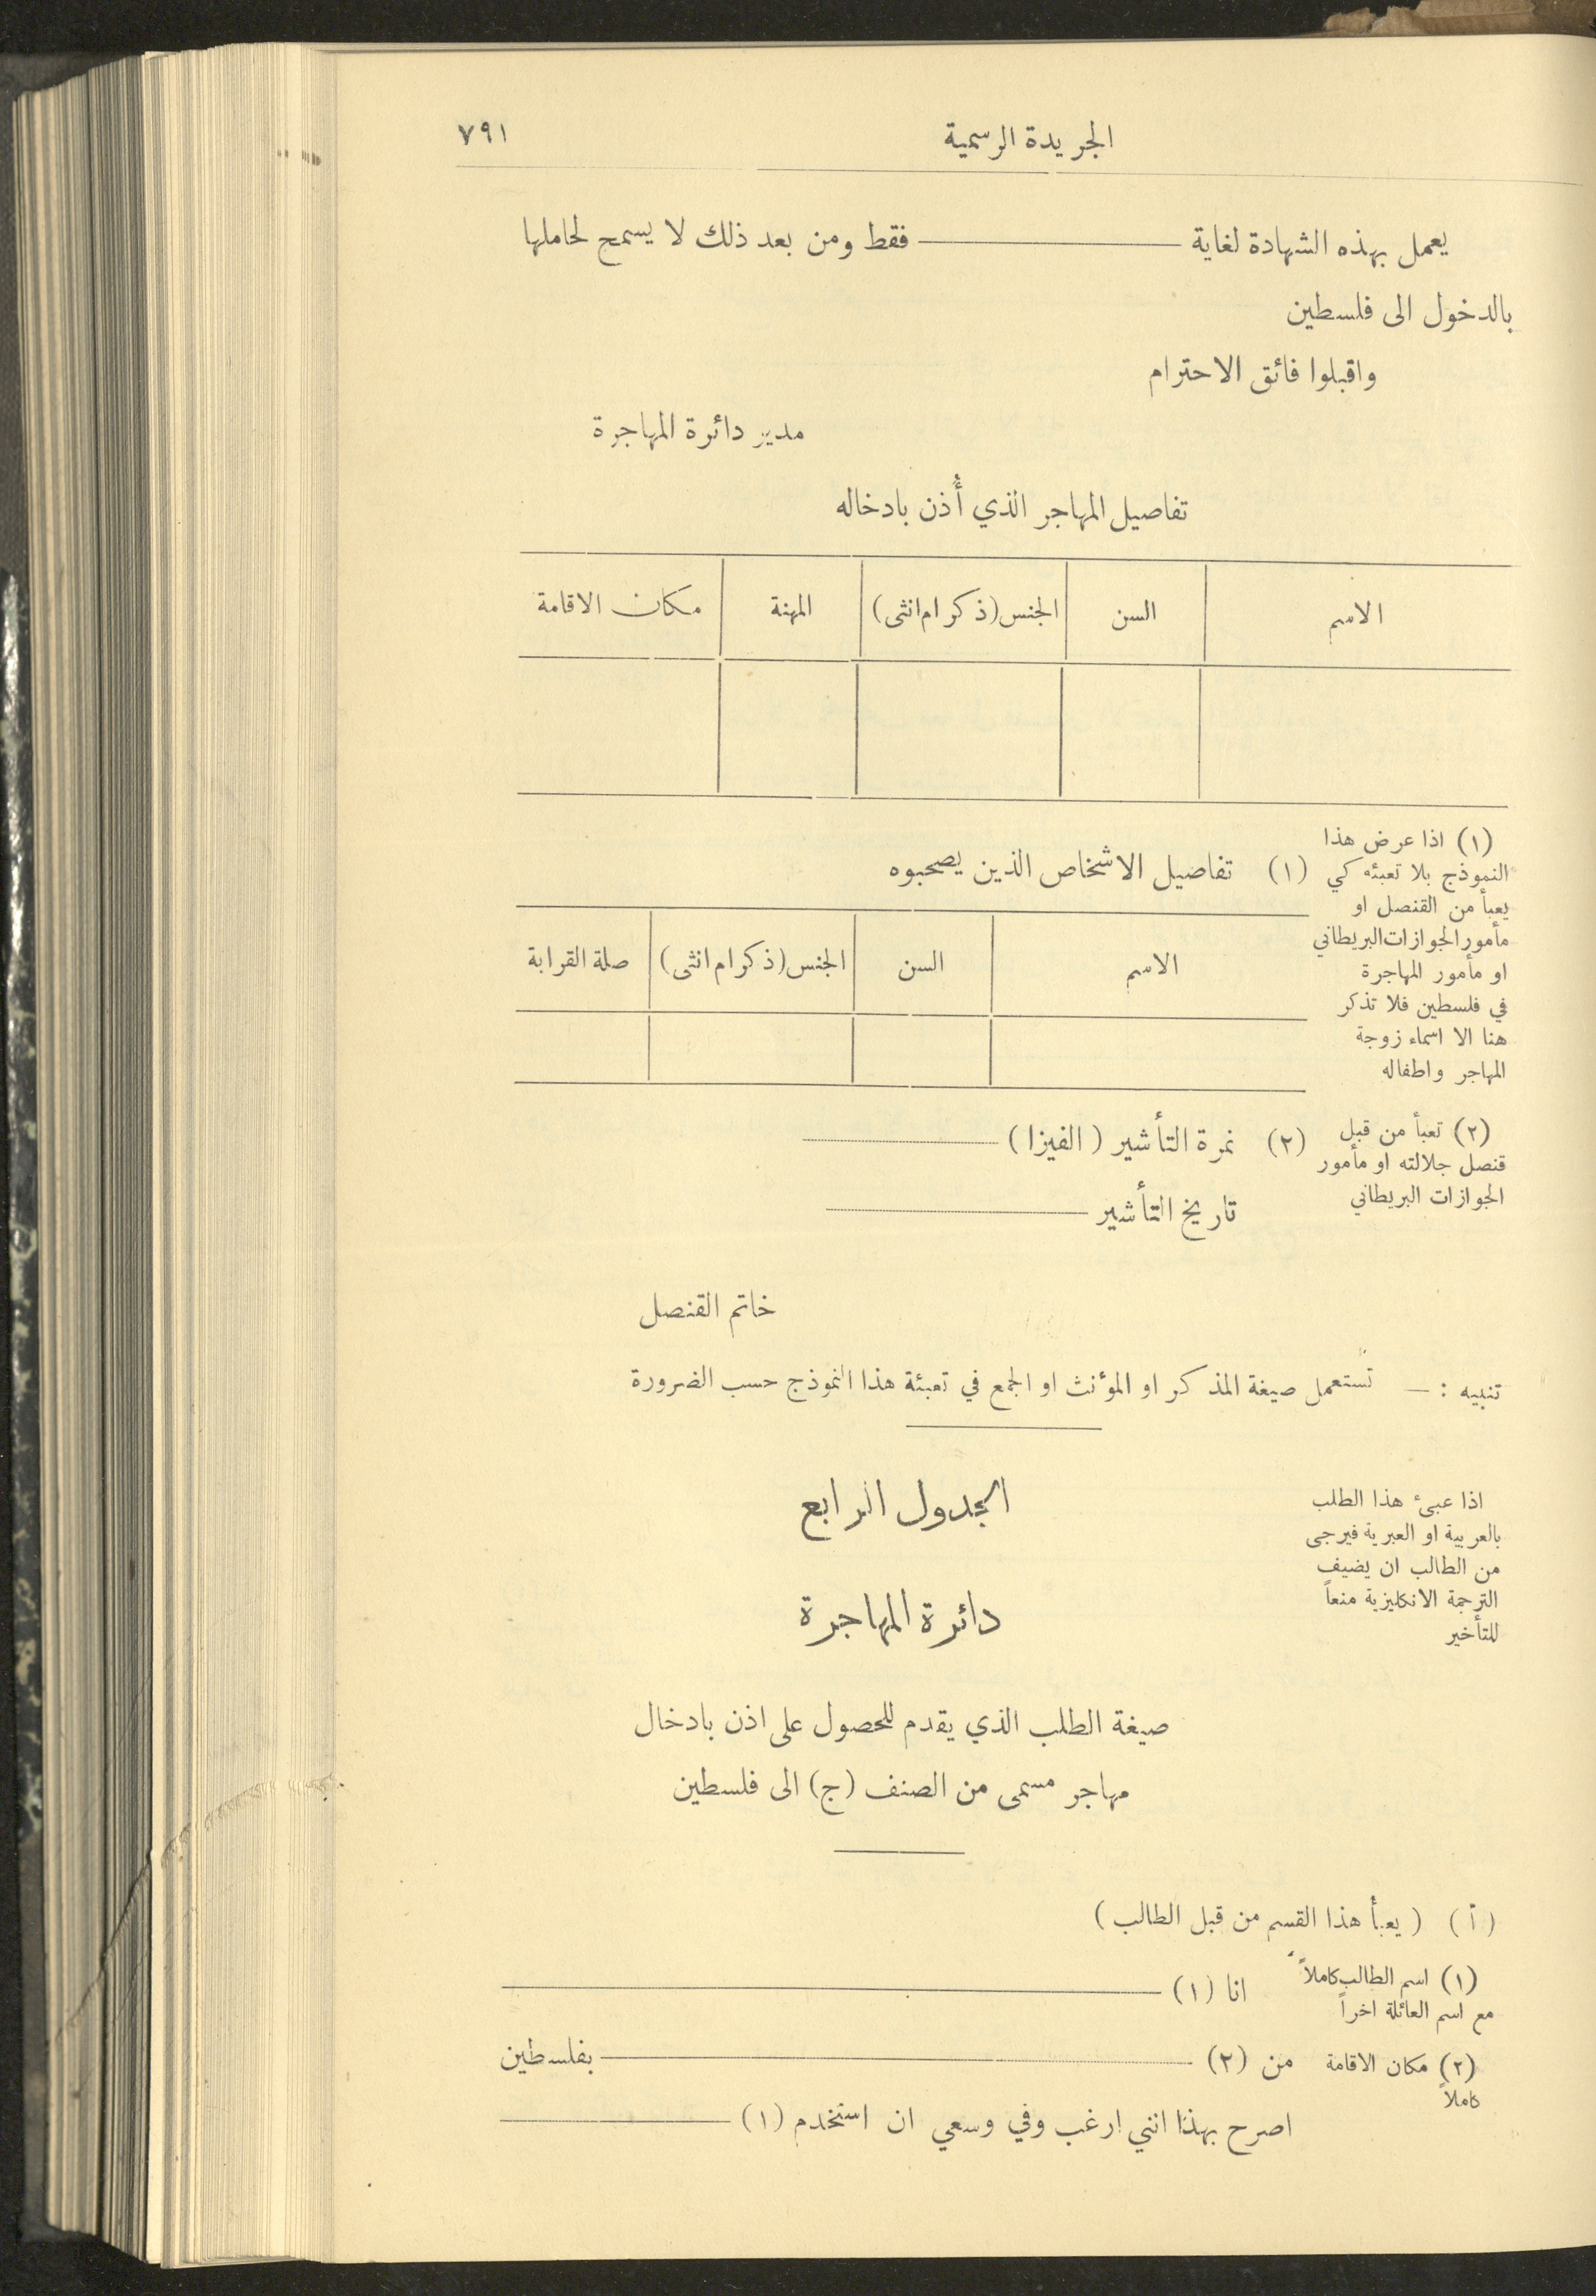 الجريدة الرسمية ٧٩١
يعمل بهذه الشهادة لغاية ـــــــــــ فقط ومن بعد ذلك لا يسمح لحاملها
بالدخول الى فلسطين
واقبلوا فائق الاحترام
مدير دائرة المهاجرة
تفاصيل المهاجر الذي أُذن بادخاله
الاسم السن الجنس (ذكر ام انثى) المهنة مكان الاقامة
(١) اذا عرض هذا
النموذج بلا تعبئه كي
يعبأ من القنصل او
مأمور الجوازات البريطاني
او مأمور المهاجرة
في فلسطين فلا تذكر
هنا الا اسماء زوجة
المهاجر واطفاله
(١) تفاصيل الاشخاص الذين يصحبوه
الاسم السن الجنس (ذكر ام انثى) صلة القرابة
(٢) تعبأ من قبل
قنصل جلالته او مأمور
الجوازات البريطاني
(٢) نمرة التأشير (الفيزا) ـــــــــــ
تاريخ التأشير ـــــــــــ
خاتم القنصل
تنبيه : — تستعمل صيغة المذكر او المؤنث او الجمع في تعبئة هذا النموذج حسب الضرورة
الجدول الرابع
اذا عبىء هذا الطلب
بالعربية او العبرية فيرجى
من الطالب ان يضيف
الترجمة الانكليزية منعاً
للتأخير
دائرة المهاجرة
صيغة الطلب الذي يقدم للحصول على اذن بادخال
مهاجر مسمى من الصنف (ج) الى فلسطين
(أ) (يعبأ هذا القسم من قبل الطالب)
(١) اسم الطالب كاملاً
مع اسم العائلة اخراً
انا (١) ـــــــــــ
(٢) مكان الاقامة
كاملاً
من (٢) ـــــــــــ بفلسطين
اصرح بهذا انني ارغب وفي وسعي ان استخدم (١) ـــــــــــ